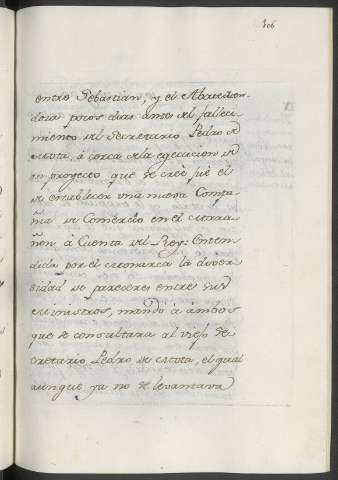 106
entre Sebastian, y el
dosa pocos dias antes del falleci-
miento del Secretario Pedro de
Mota, á cerca de la egecucion de
un proyecto, que se creè fue el
de establecer una nueva Compa-
ñia de Comercio en el Mara-
ñon à Cuenta del Rey: Enten-
dida por el Monarca la diver-
sidad de pareceres entre sus
Ministros, mandó à ambos
que se consultara al viejo Se-
cretario Pedro de Mota, el qual
aunque ya no se levantava